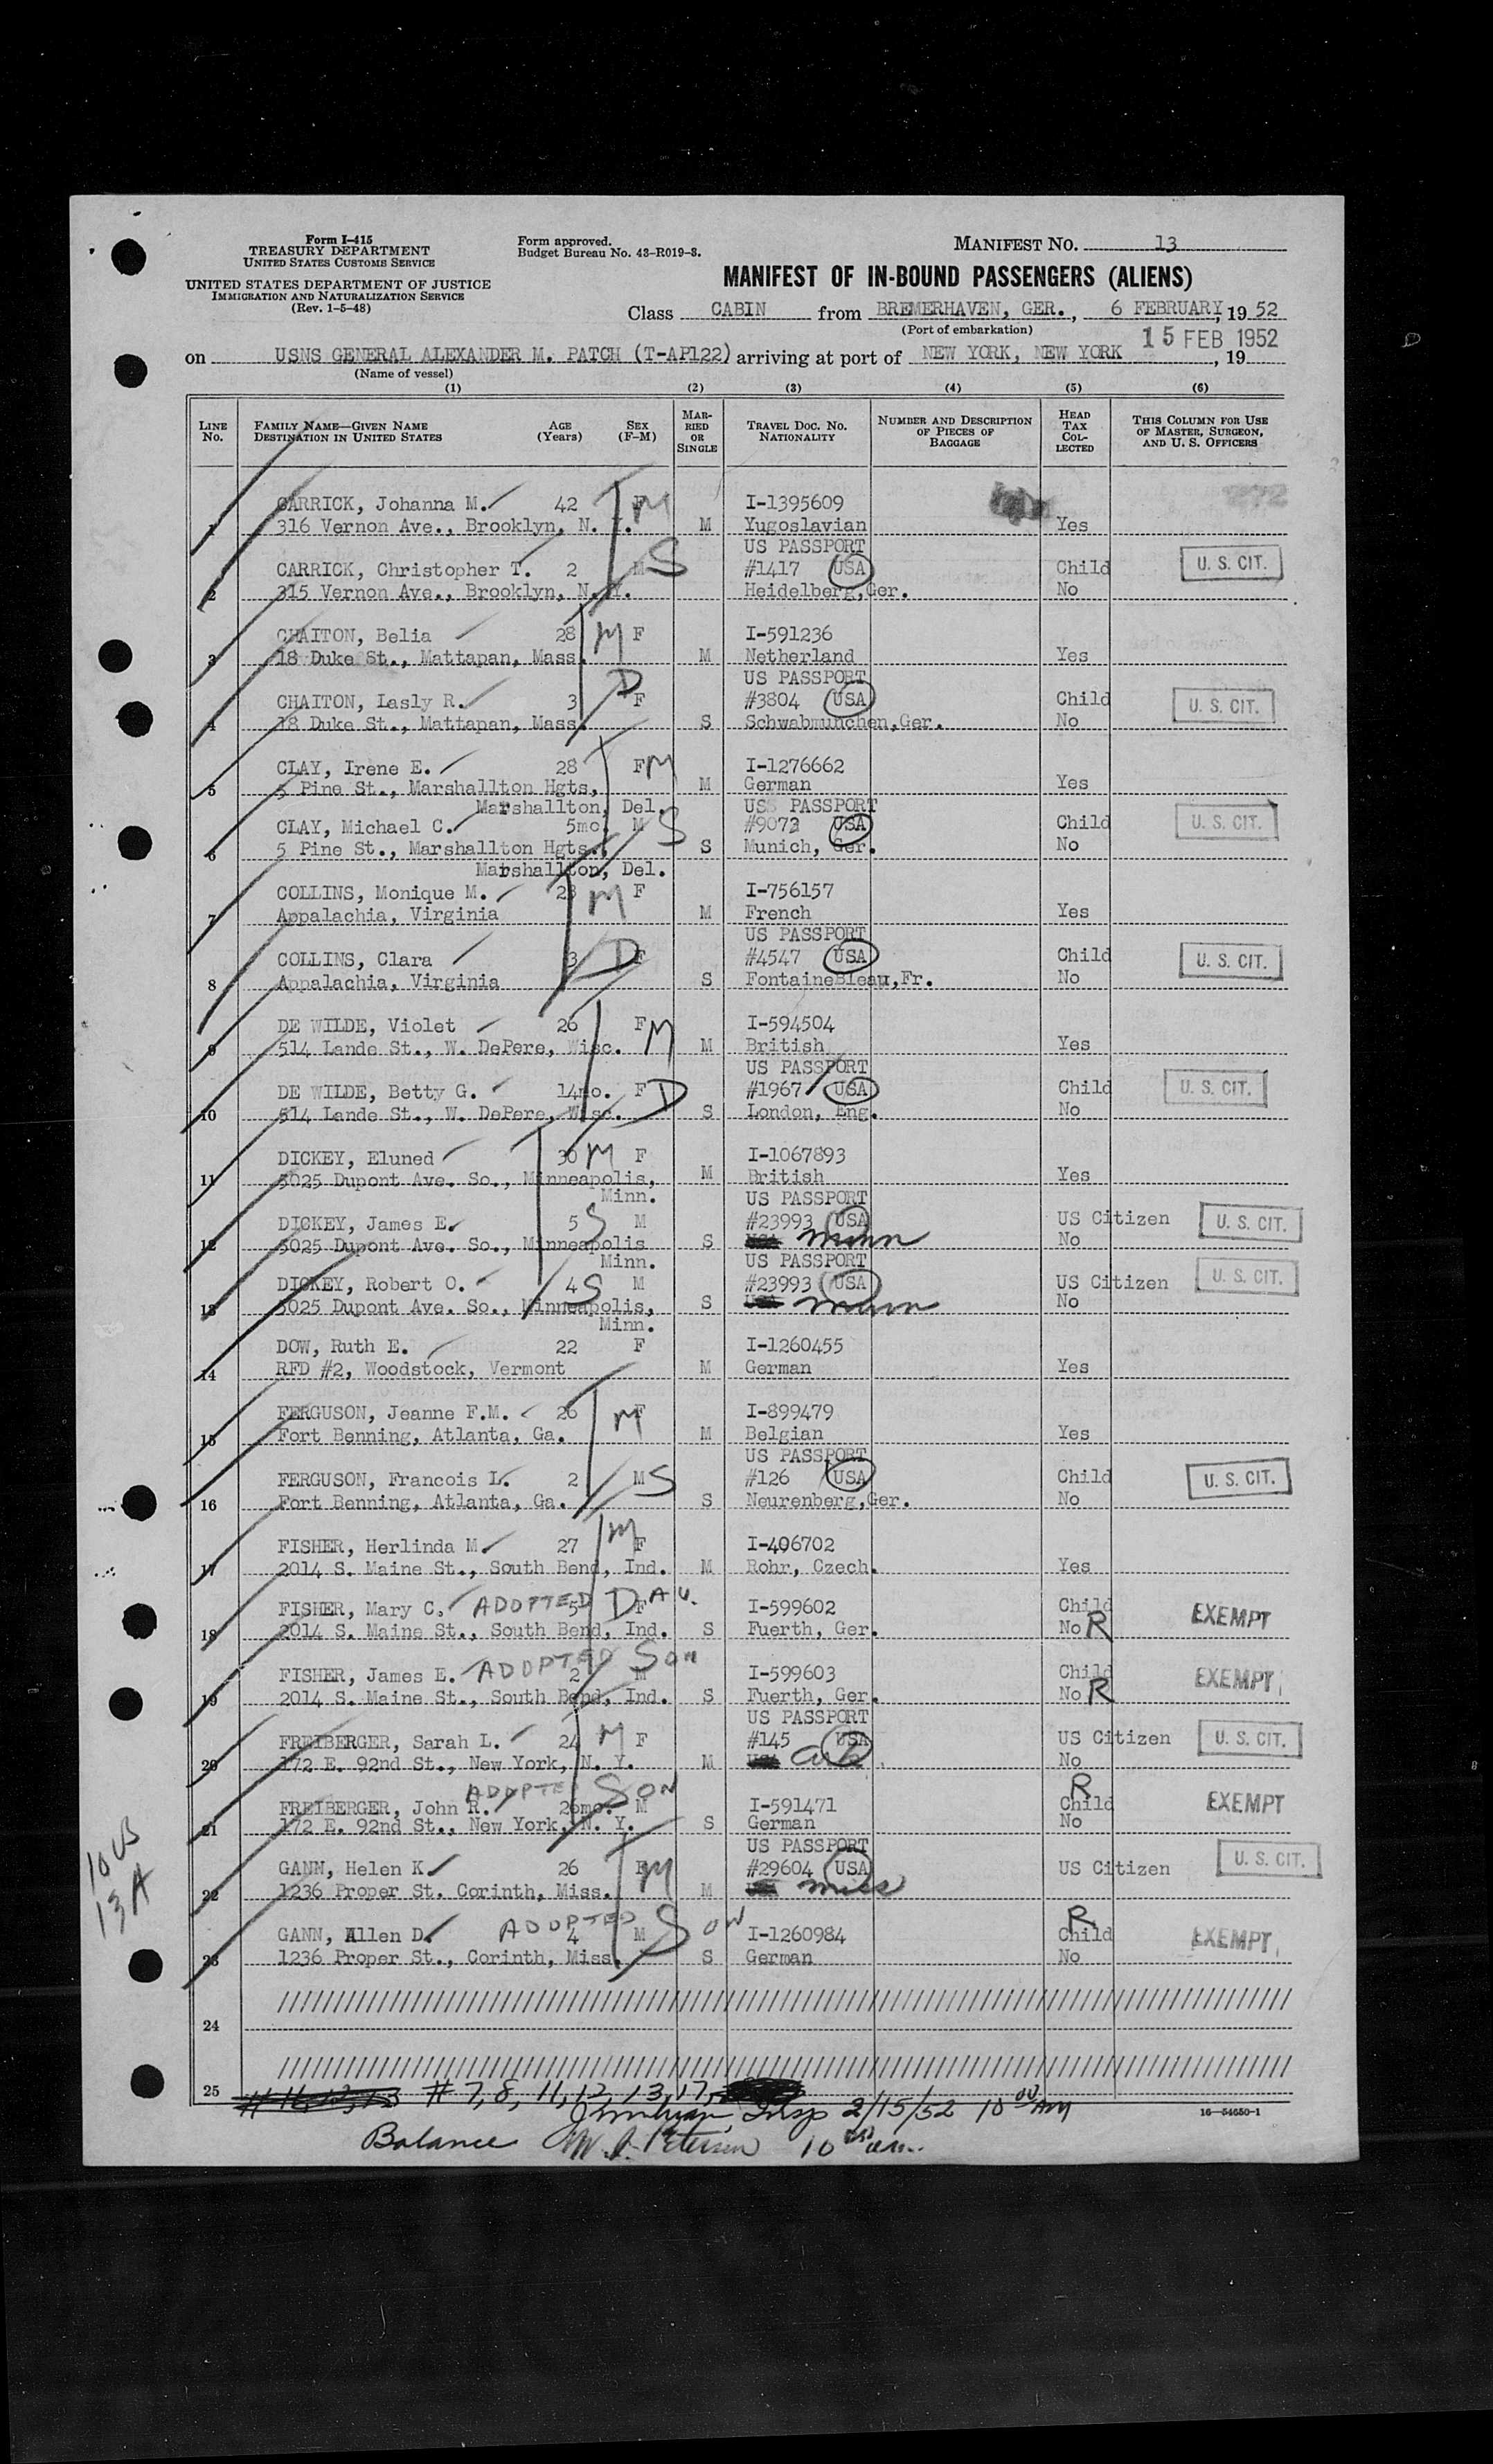 Form I-415
TREASURY DEPARTMENT
UNITED STATES CUSTOMS SERVICE
UNITED STATES DEPARTMENT OF JUSTICE
IMMIGRATION AND NATURALIZATION SERVICE
(Rev. 1-5-48)
Form approved.
Budget Bureau No. 43-R019-3.
MANIFEST NO. 13
MANIFEST OF IN-BOUND PASSENGERS (ALIENS)
Class CABIN from BREMERHAVEN, GER., 6 FEBRUARY, 19 52
(Port of embarkation)
15 FEB 1952
on USNS GENERAL ALEXANDER M. PATCH (T-AP122) arriving at port of NEW YORK, NEW YORK, 19
(Name of vessel)
(1) (2) (3) (4) (5) (6)
LINE No. FAMILY NAME—GIVEN NAME DESTINATION IN UNITED STATES AGE (Years) SEX (F-M) MARRIED OR SINGLE TRAVEL DOC. NO. NATIONALITY NUMBER AND DESCRIPTION OF PIECES OF BAGGAGE HEAD TAX COLLECTED THIS COLUMN FOR USE OF MASTER, SURGEON, AND U. S. OFFICERS
CARRICK, Johanna M. 42 F M I-1395609
1 316 Vernon Ave., Brooklyn, N. Y. M Yugoslavian Yes
US PASSPORT
CARRICK, Christopher T. 2 M S #1417 USA Child U. S. CIT.
2 315 Vernon Ave., Brooklyn, N. Y. Heidelberg,Ger. No
CHAITON, Belia 28 M F I-591236
3 18 Duke St., Mattapan, Mass. M Netherland Yes
US PASSPORT
CHAITON, Lasly R. 3 D F #3804 USA Child U. S. CIT.
4 18 Duke St., Mattapan, Mass. S Schwabmunchen,Ger. No
CLAY, Irene E. 28 F M I-1276662
5 5 Pine St., Marshallton Hgts, M German Yes
Marshallton, Del. US PASSPORT
CLAY, Michael C. 5mo. M S #9073 USA Child U. S. CIT.
6 5 Pine St., Marshallton Hgts., S Munich, Ger. No
Marshallton, Del.
COLLINS, Monique M. 23 M F I-756157
7 Appalachia, Virginia M French Yes
US PASSPORT
COLLINS, Clara 3 D F #4547 USA Child U. S. CIT.
8 Appalachia, Virginia S FontaineBleau,Fr. No
DE WILDE, Violet 26 F M I-594504
9 514 Lande St., W. DePere, Wisc. M British Yes
US PASSPORT
DE WILDE, Betty G. 14mo. F D #1967 USA Child U. S. CIT.
10 514 Lande St., W. DePere, Wisc. S London, Eng. No
DICKEY, Eluned 30 M F I-1067893
11 5025 Dupont Ave. So., Minneapolis, M British Yes
Minn. US PASSPORT
DICKEY, James E. 5 S M #23993 USA US Citizen U. S. CIT.
12 5025 Dupont Ave. So., Minneapolis S Minn No
Minn. US PASSPORT
DICKEY, Robert O. 4 S M #23993 USA US Citizen U. S. CIT.
13 5025 Dupont Ave. So., Minneapolis, S Minn No
Minn.
DOW, Ruth E. 22 F I-1260455
14 RFD #2, Woodstock, Vermont M German Yes
FERGUSON, Jeanne F.M. 26 M F I-899479
15 Fort Benning, Atlanta, Ga. M Belgian Yes
US PASSPORT
FERGUSON, Francois L. 2 M S #126 USA Child U. S. CIT.
16 Fort Benning, Atlanta, Ga. S Neurenberg,Ger. No
FISHER, Herlinda M. 27 M F I-406702
17 2014 S. Maine St., South Bend, Ind. M Rohr, Czech. Yes
FISHER, Mary C. ADOPTED 5 DAU. F I-599602 Child EXEMPT
18 2014 S. Maine St., South Bend, Ind. S Fuerth, Ger. No R
FISHER, James E. ADOPTED SON 2 M I-599603 Child EXEMPT
19 2014 S. Maine St., South Bend, Ind. S Fuerth, Ger. No R
US PASSPORT
FREIBERGER, Sarah L. 24 M F #145 USA US Citizen U. S. CIT.
20 172 E. 92nd St., New York, N. Y. M No
ADOPTED SON R
FREIBERGER, John R. 26mo. M I-591471 Child EXEMPT
21 172 E. 92nd St., New York, N. Y. S German No
US PASSPORT
GANN, Helen K. 26 F M #29604 USA US Citizen U. S. CIT.
22 1236 Proper St. Corinth, Miss. M Miss
ADOPTED SON R
GANN, Allen D. 4 M I-1260984 Child EXEMPT
23 1236 Proper St., Corinth, Miss. S German No
24
25
10 UB
13 A
# 7, 8, 11, 12, 13, 17,
Insp 2/15/52 10 00 AM
16-54650-1
Balance M. J. Petersen 10 00 am.